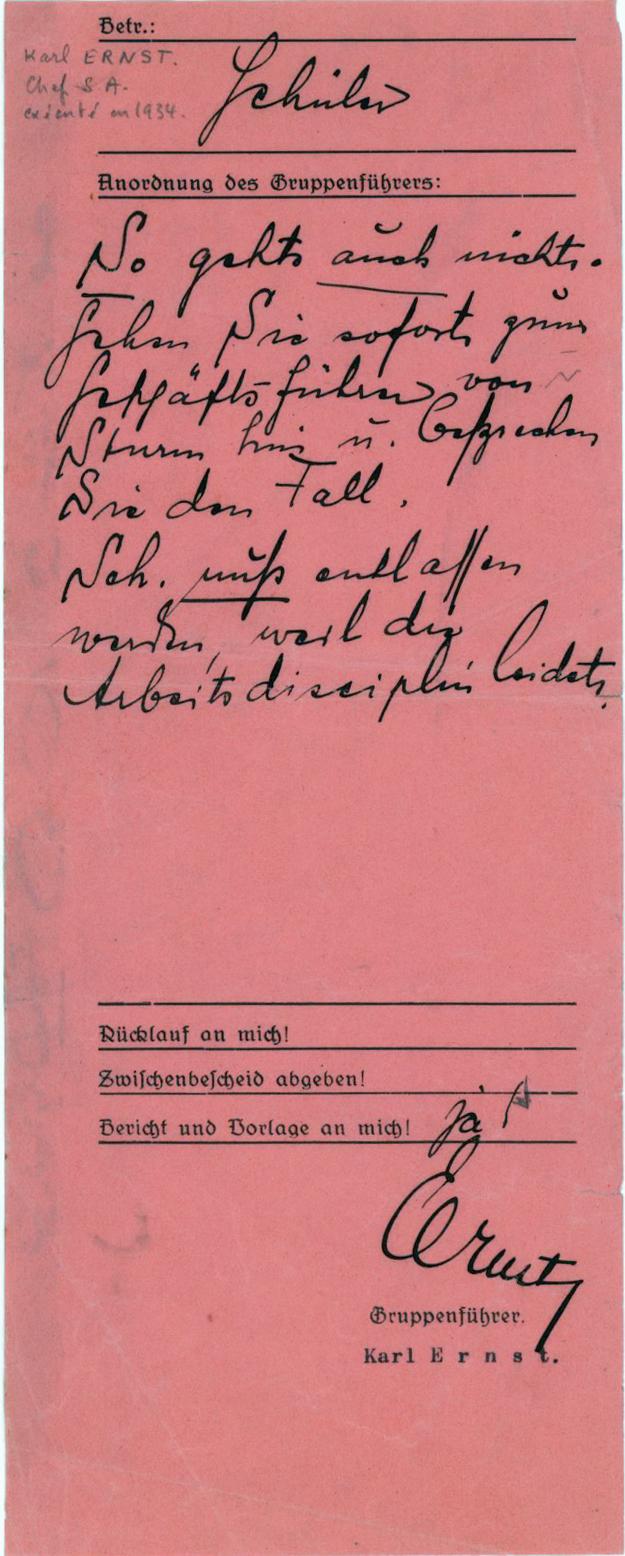 Betr.:
Karl ERNST.
Chef S A.
exécuté en 1934.
Schüler
Anordnung des Gruppenführers:
So geht auch nicht.
Gehen Sie sofort zum
Geschäftsführer von
Sturm hin u. besprechen
Sie den Fall.
Sch. muß entlassen
werden, weil die
Arbeitsdisciplin leidet.
Rücklauf an mich!
Zwischenbescheid abgeben!
Bericht und Vorlage an mich! ja!
Ernst
Gruppenführer.
Karl Ernst.